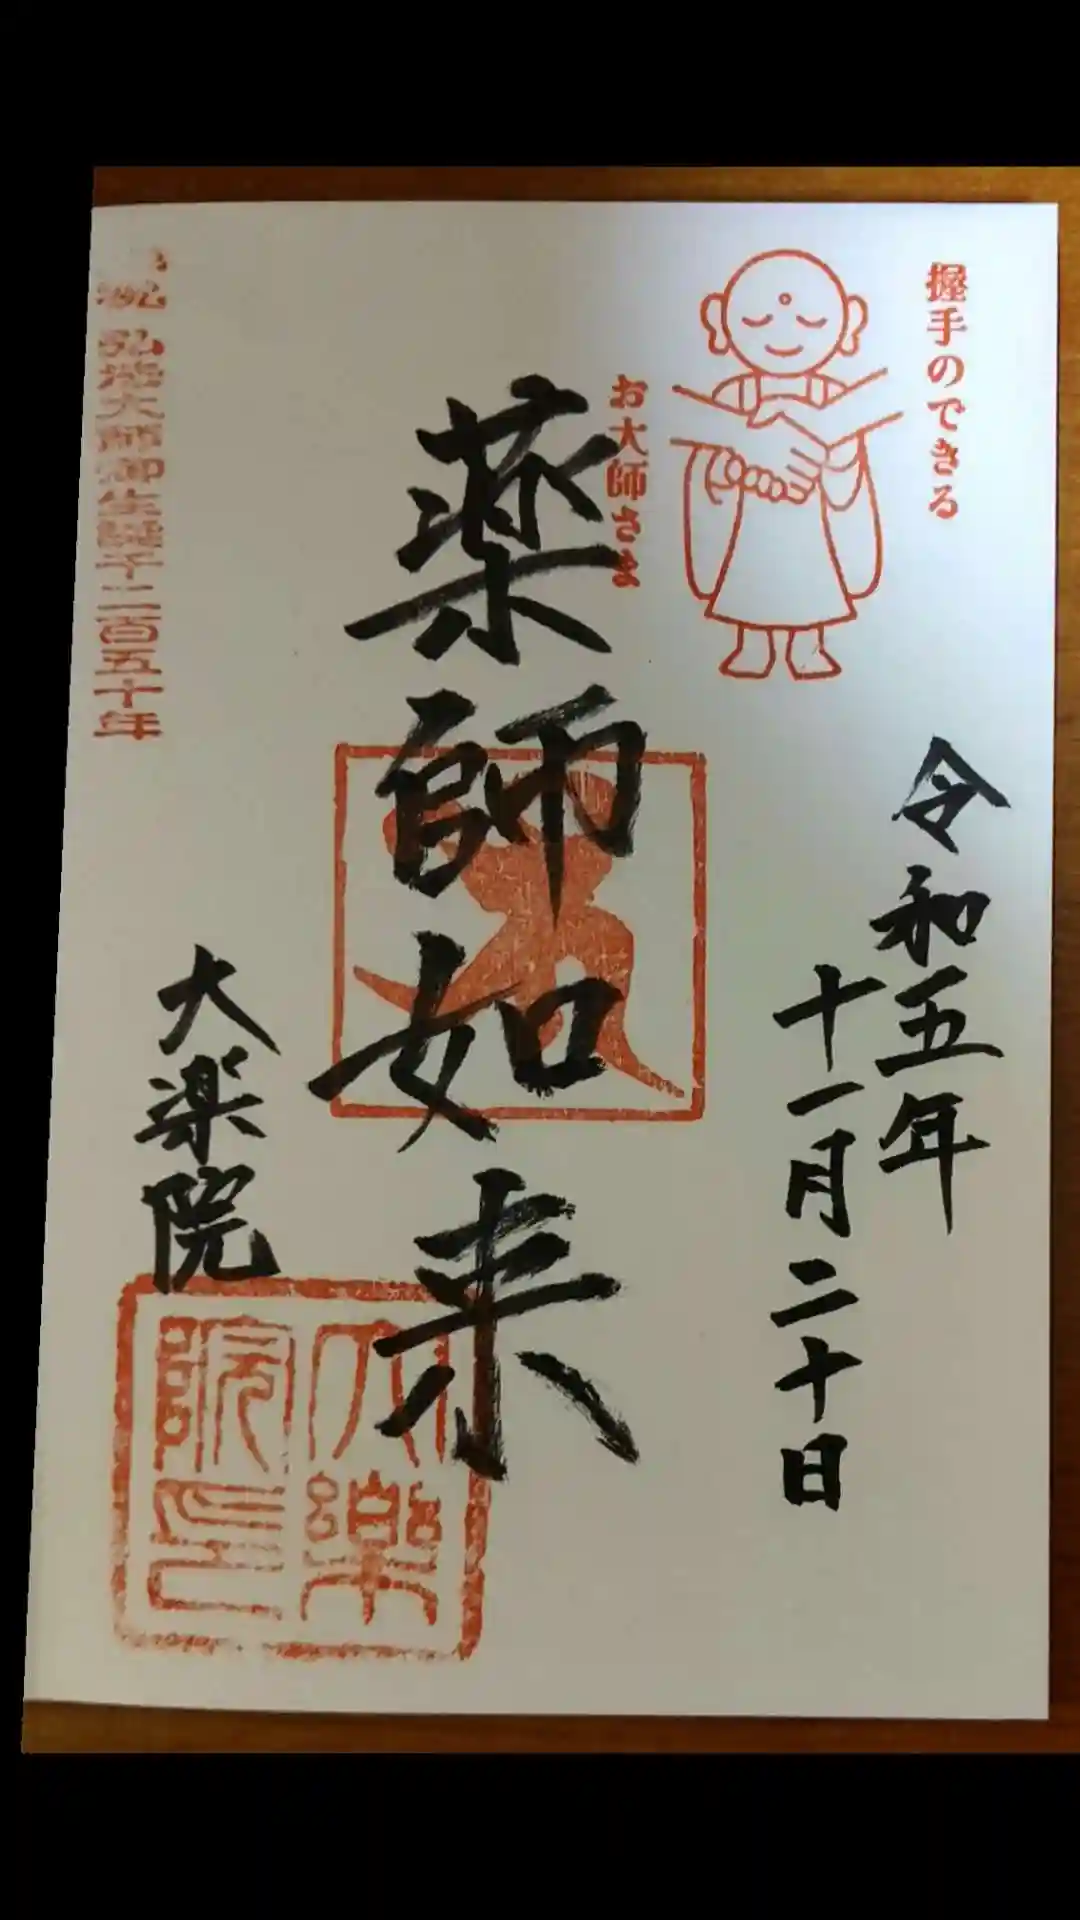 握手のできる
お大師さま
令和五年
十一月二十日
薬師如来
大楽院
大樂院印
祝 弘法大師御生誕千二百五十年